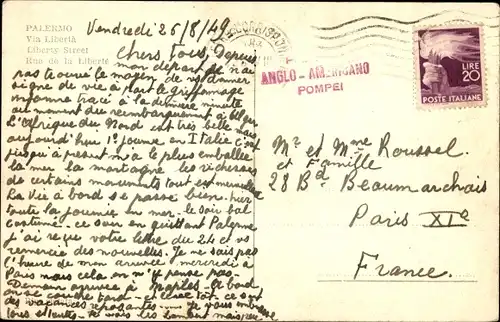 PALERMO
Via Libertà
Liberty Street
Rue de la Liberté
Vendredi 26/8/49
Chers Tous, Depuis
mon départ je n'ai
pas trouvé le moyen de vs donner
signe de vie à part le griffonnage
informe tracé à la dernière minute
au moment du réembarquement à Alger
L'Afrique du Nord est très belle mais
aujourd'hui 1e journée en Italie c'est
jusqu'à présent ce qui m'a le plus emballée
la mer la montagne les richesses
de certains monuments tout est merveilleux
La vie à bord se passe bien. hier
toute la journée en mer. le soir bal
costumé. ce soir en quittant Palerme
j'ai reçu votre lettre du 24 et vs
remercie des nouvelles. Je ne sais pas
l'heure de mon arrivée mercredi à
Paris mais cela on n'y pense pas.
Demain arrivée à Naples. A bord
couche bord ce sont
des vacances reposantes. Je vous embrasse
tous
ANGLO-AMERICANO
POMPEI
LIRE
20
POSTE ITALIANE
Mr et Mme Roussel
et Famille
28 Bd Beaumarchais
Paris XIe
France.